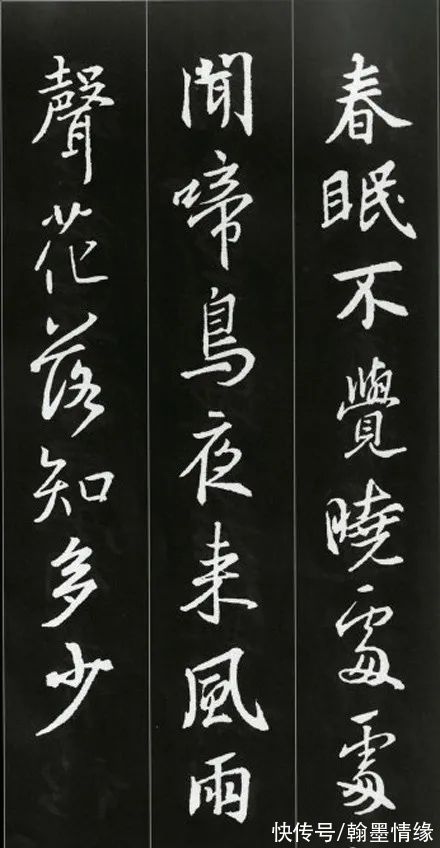 春眠不覺曉處處
聞啼鳥夜来風雨
聲花落知多少
快传号/翰墨情缘